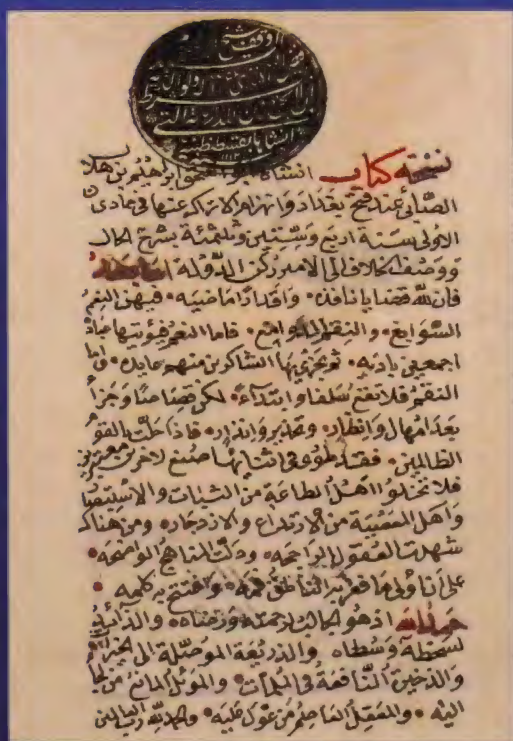 نسخة كتاب انشاه ابو اسحق ابراهيم بن هلال
الصابى عند فتح بغداد وانهزام الاتراك عنها فى جمادى
الاولى سنة اربع وستين وثلثمئة بشرح الحال
ووصف الخلاف الى الامير ركن الدولة اما بعد
فان لله قضايا نافذه وأقدارا ماضيه فيهن النعم
السوابغ والنقم الدوامغ فاما النعم فيؤتيها عباده
اجمعين باديه ثم يجزى بها الشاكرين منهم عايده واما
النقم فلا تقع سلفا وابتداء لكن قصاصا وجزاء
بعد امهال وانظار وتحذير وانذار فاذا حلت بالقوم
الظالمين فقد طوى فى اثنائها صنع لاخرين معتبرين
فلا تخلوا اهل الطاعة من الثبات والاستبصار
واهل المعصية من الارتداع والازدجار ومن هناك
شهدت العقول الراجحه ودلت المناهج الواضحه
على أن أولى ما فغر به الناطق فمه وافتتح به كلمه
حمد لله اذ هو الجالب لرحمته ورضاه والذائد
لسخطه وسطاه والذريعة الموصلة الى الخيرات
والذخيرة النافعة فى الملمات والموئل المانع من لجأ
اليه والمعقل العاصم من عول عليه والحمد لله رب العالمين